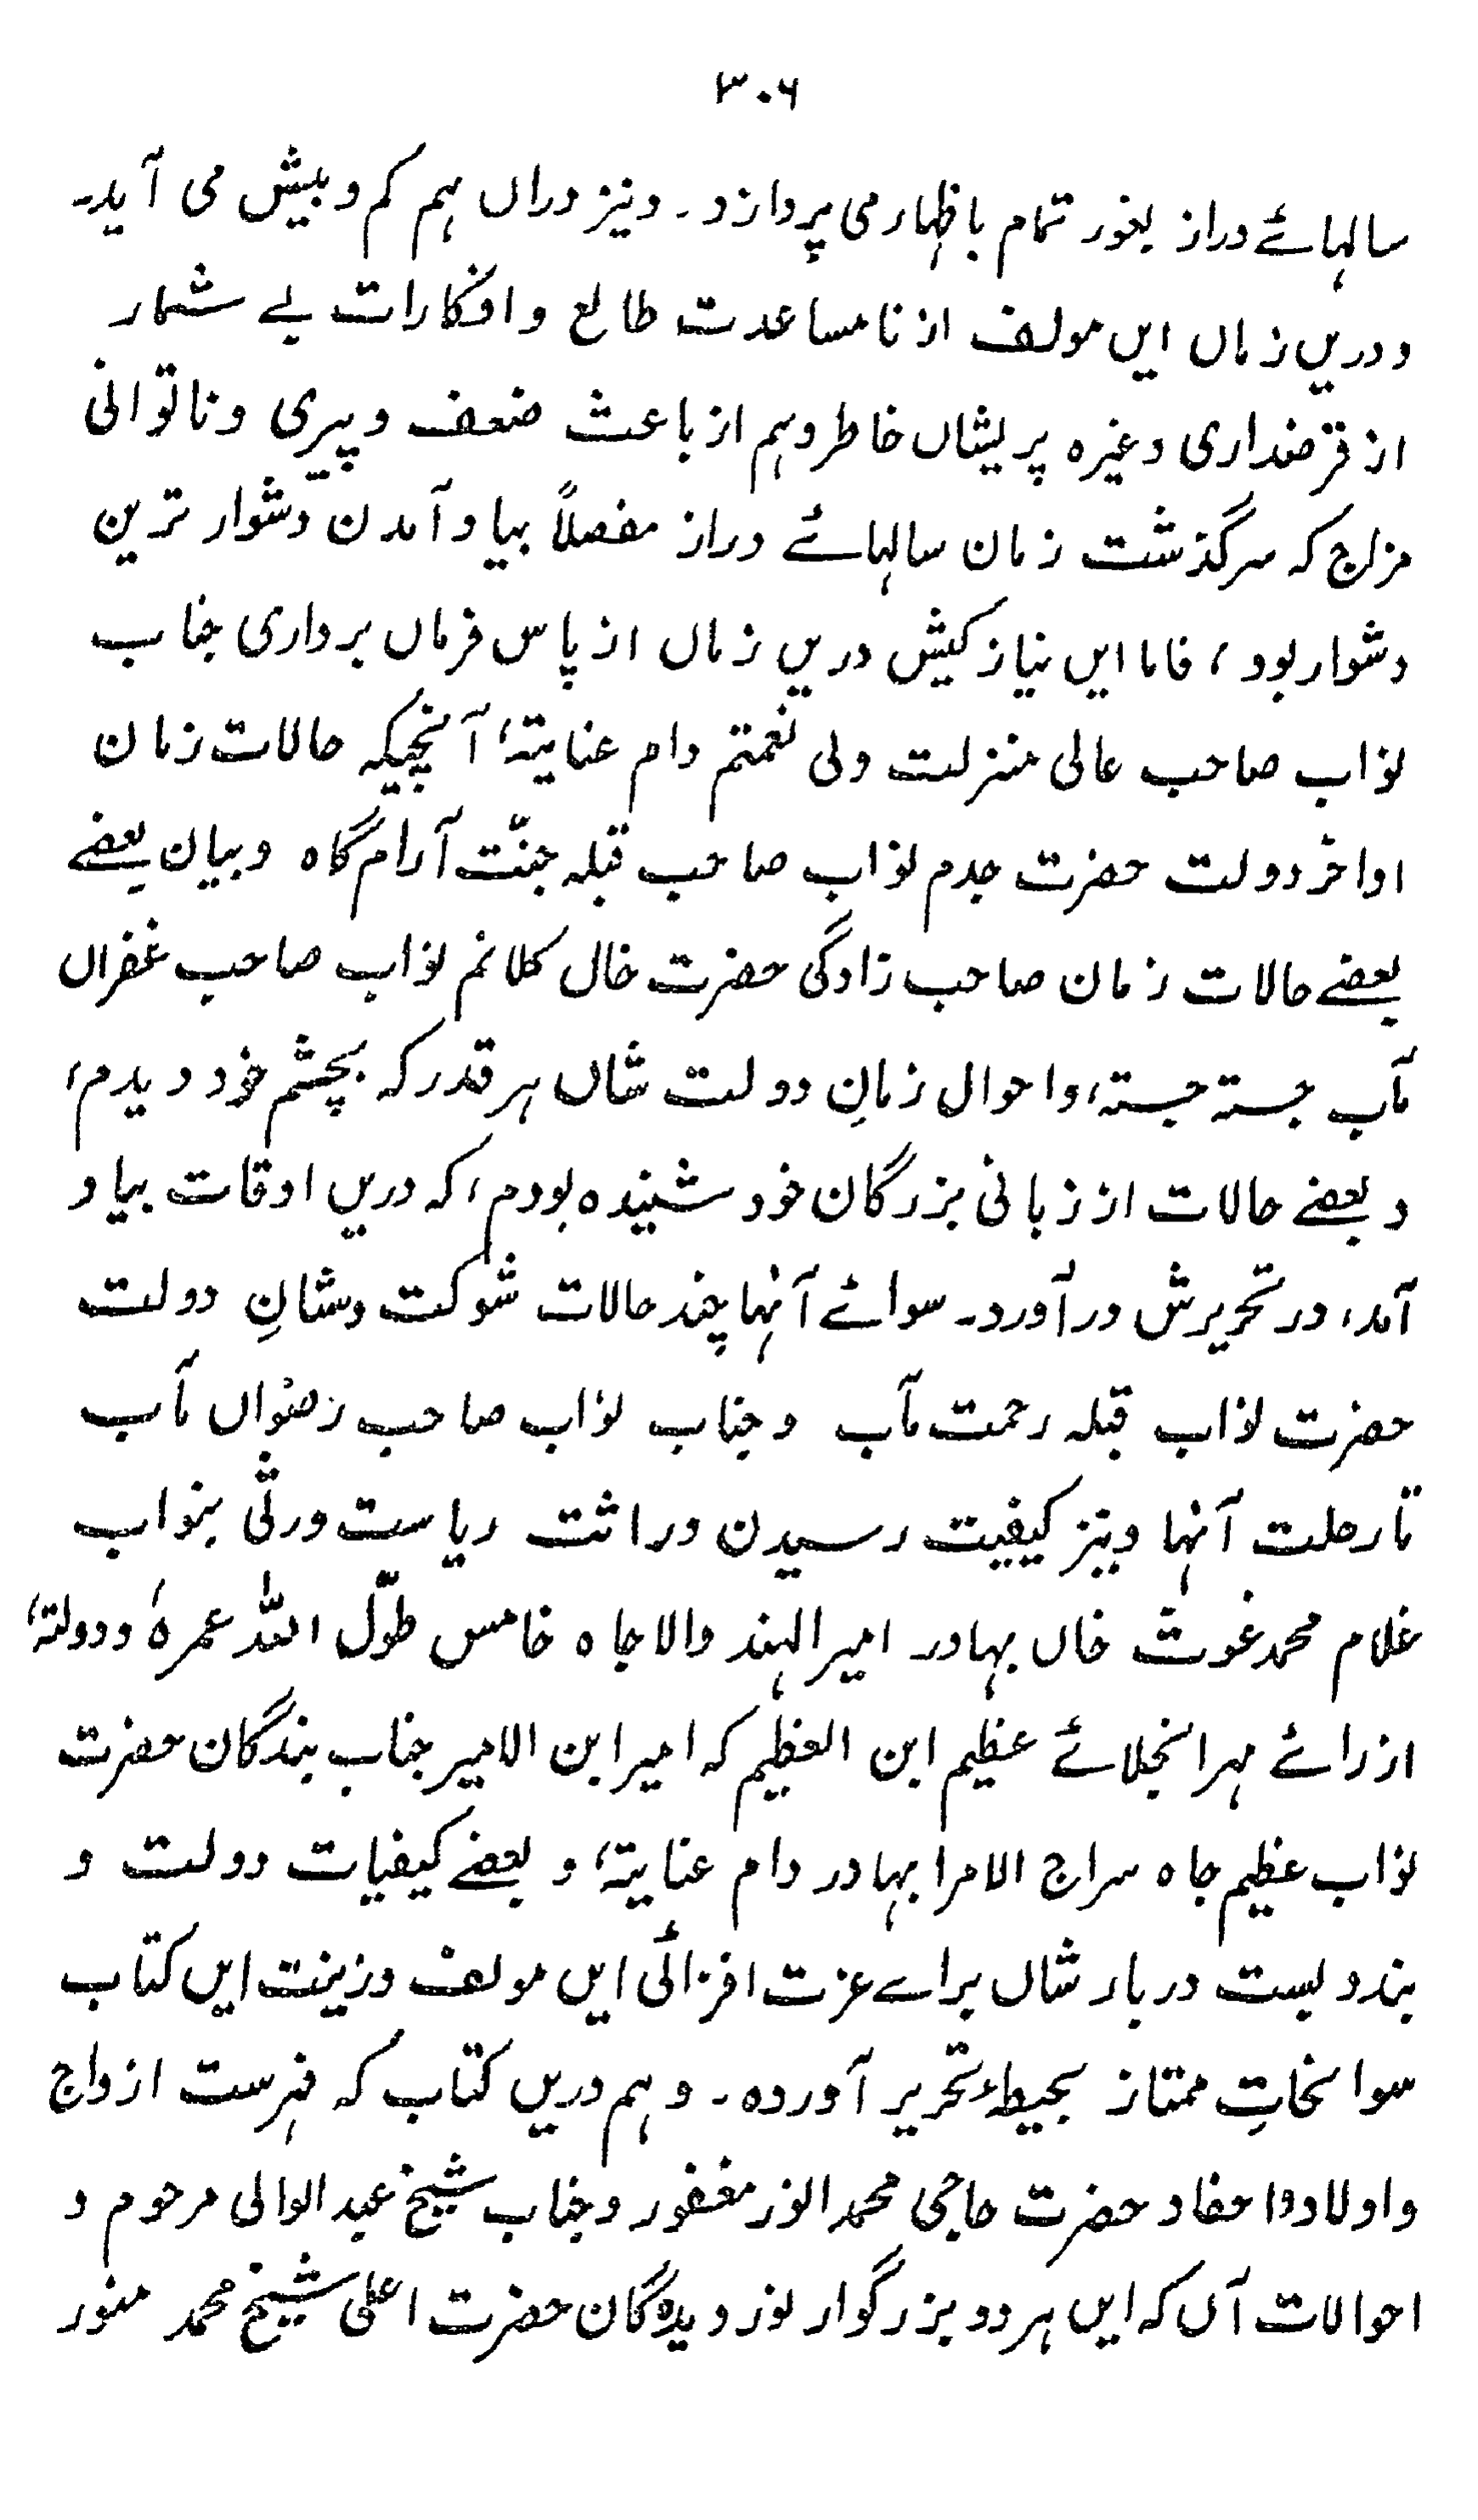 ۳۰۶
سالہائے دراز بغور تمام باظہار می پردازد ۔ ونیز دراں ہم کم و بیش می آید۔
و دریں زماں ایں مولف از نا مساعدت طالع و افکارات بے شمار
از قرضداری وغیرہ پریشاں خاطر وہم از باعث ضعف و پیری و ناتوانی
مزاج کہ سرگذشت زمان سالہائے دراز مفصلاً بیاد آمدن دشوار ترین
دشوار بود، فاما ایں نیاز کیش دریں زماں از پاس فرماں برداری جناب
نواب صاحب عالی منزلت ولی نعمتم دام عنایتہٗ آنچیکہ حالات زمان
اواخر دولت حضرت جدم نواب صاحب قبلہ جنّت آرام گاہ و بیان بعضے
بعضے حالات زمان صاحب زادگی حضرت خال کلانم نواب صاحب غفراں
مآب جستہ جستہ، و احوال زمانِ دولت شاں ہر قدر کہ بچشم خود دیدم،
و بعضے حالات از زبانی بزرگان خود شنیدہ بودم، کہ دریں اوقات بیاد
آمد، در تحریرش درآورد۔ سوائے آنہا چند حالات شوکت و شانِ دولت
حضرت نواب قبلہ رحمت مآب و جناب نواب صاحب رضواں مآب
تا رحلت آنہا ونیز کیفیت رسیدن وراثت ریاست ورثی بنواب
غلام محمد غوث خاں بہادر امیر الہند والا جاہ خامس طوّل اللہ عمرہٗ و دولتہٗ
از رائے مہر انجلائے عظیم ابن العظیم کہ امیر ابن الامیر جناب بندگان حضرت
نواب عظیم جاہ سراج الامرا بہادر دام عنایتہٗ و بعضے کیفیات دولت و
بندوبست دربار شاں براے عزت افزائی ایں مولف و زینت ایں کتاب
سوانحاتِ ممتاز بحیطۂ تحریر آوردہ ۔ وہم دریں کتاب کہ فہرست ازواج
و اولاد و احفاد حضرت حاجی محمد انور مغفور و جناب شیخ عبد الوالی مرحوم و
احوالات آں کہ ایں ہر دو بزرگوار نور دیدگان حضرت اعلی شیخ محمد منور